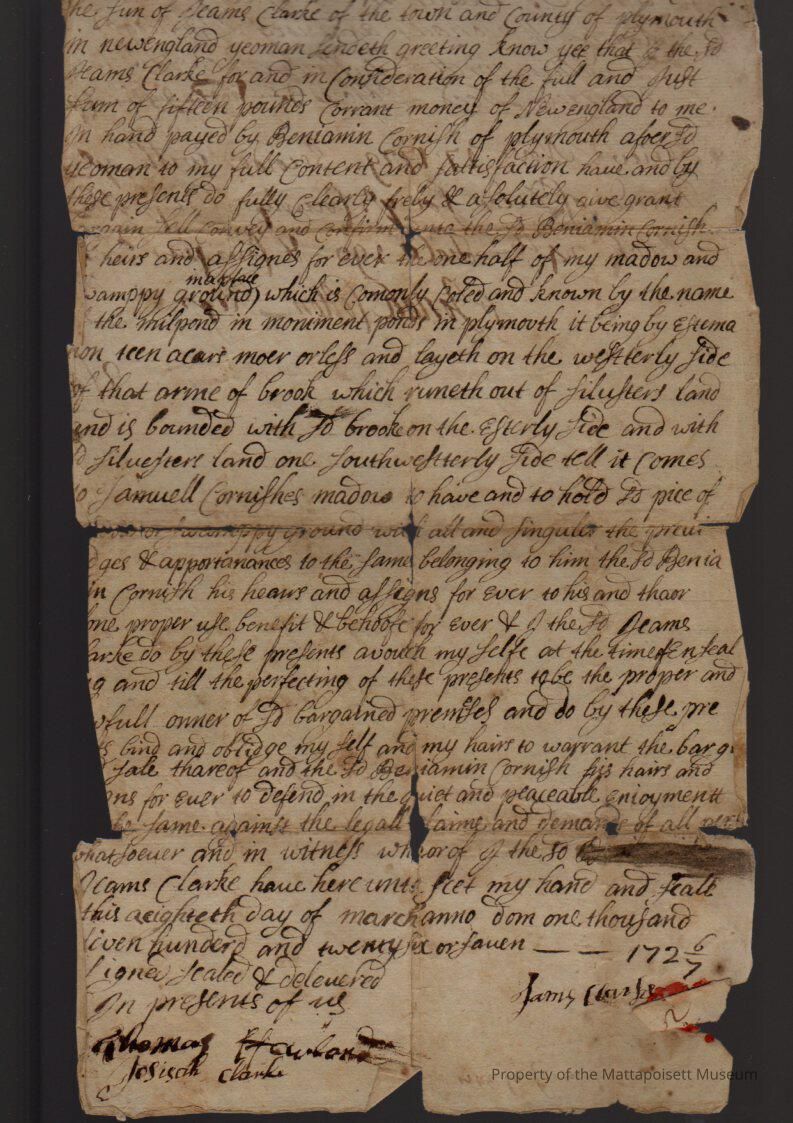 he sun of Jeams Clarke of the town and County of plymouth
in newengland yeoman sendeth greeting know yee that I the sd
Jeams Clarke for and in Consideration of the full and Just
sum of fifteen pounds Corrant money of Newengland to me
In hand payed by Beniamin Cornish of plymouth afoersd
yeoman to my full Content and sattisfaction have and by
these presents do fully Clearly frely & absolutely give grant
bargain sell convey and Confirm unto the sd Beniamin Cornish
heirs and assignes for ever the one half of my madow and
wamppy ground) which is Comonly Coled and known by the name
the milpond in moniment ponds in plymouth it being by Estema
ion teen acars moer or less and layeth on the westterly side
of that arme of brook which runeth out of silusters land
and is bounded with sd brook on the Esterly side and with
d siluesters land one southwestterly side tell it Comes
to Samuell Cornishes madow to have and to hold sd pice of
swamppy ground with all and singuler the previ
dges & apportanances to the same belonging to him the sd Benia
in Cornish his heaurs and assigns for Ever to his and thaor
one proper use benefit & behoofe for ever & I the sd Jeams
larke do by these presents avouch my selfe at the time of Enseal
g and till the perfecting of these presents to be the proper and
wfull owner of sd bargained premises and do by these pre
ts bind and oblidge my self and my hairs to warrant the barg
sale thareof and the sd Beniamin Cornish his hairs and
ns for Ever to defend in the quiet and peaceable enioymentt
he same against the legall Claims and demands of all per
whatsoever and in witness whearof I the sd
Jeams Clarke have here unto seet my hand and seale
this aeighteth day of march anno dom one thousand
seven hunderd and twenty six or saven — — 172 6/7
signed sealed & delevered
In presents of us
Jams Clarke
Thomas
Josiah Clarke
Property of the Mattapoisett Museum